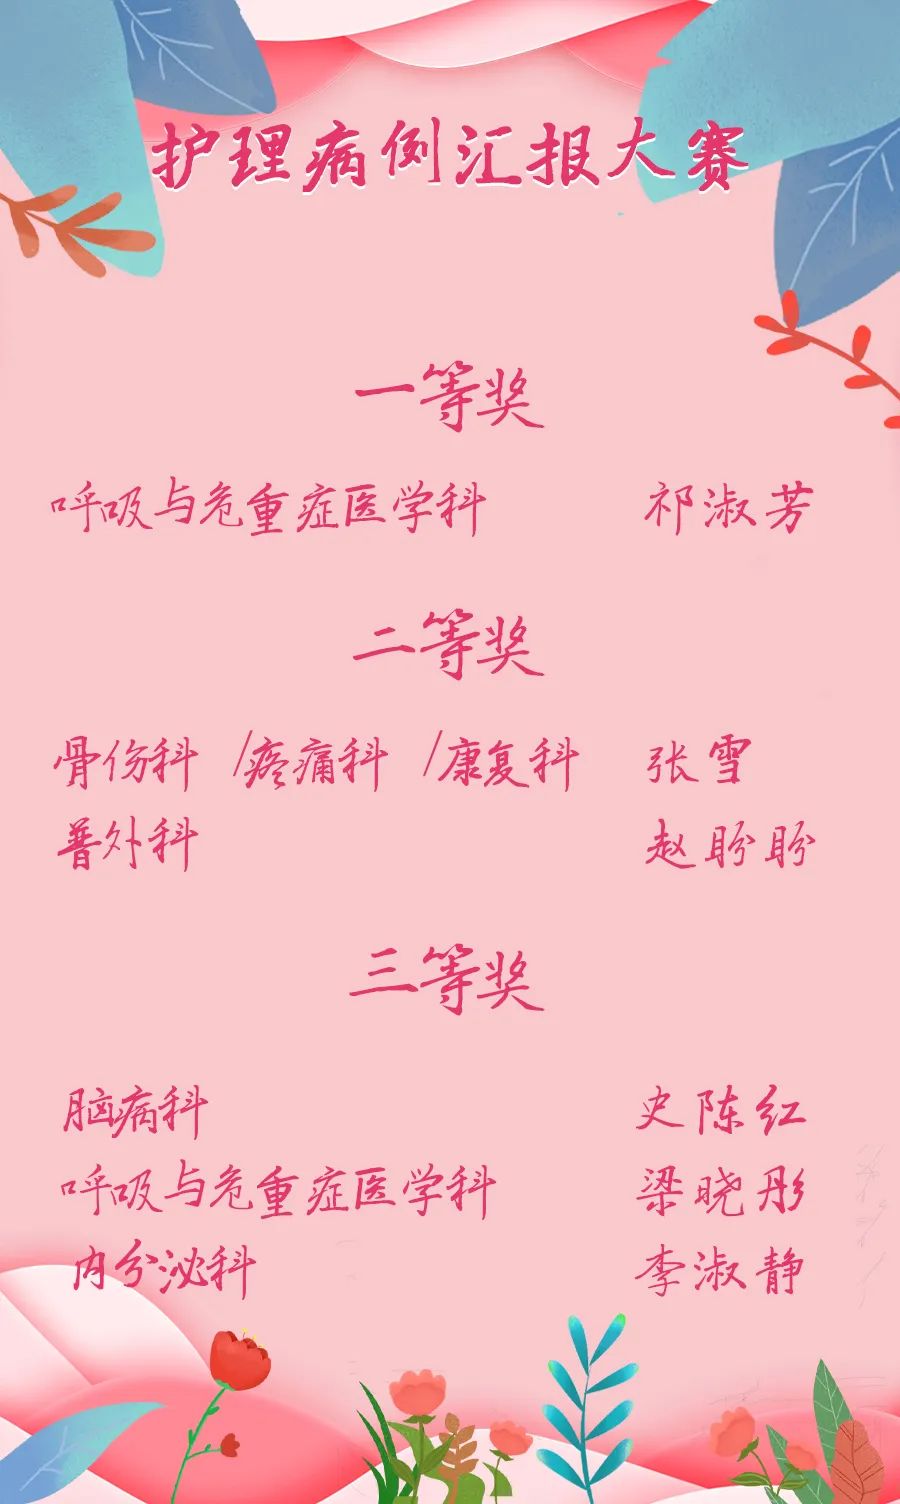 护理病例汇报大赛
一等奖
呼吸与危重症医学科 祁淑芳
二等奖
骨伤科 /疼痛科 /康复科 张雪
普外科 赵盼盼
三等奖
脑病科 史陈红
呼吸与危重症医学科 梁晓彤
内分泌科 李淑静